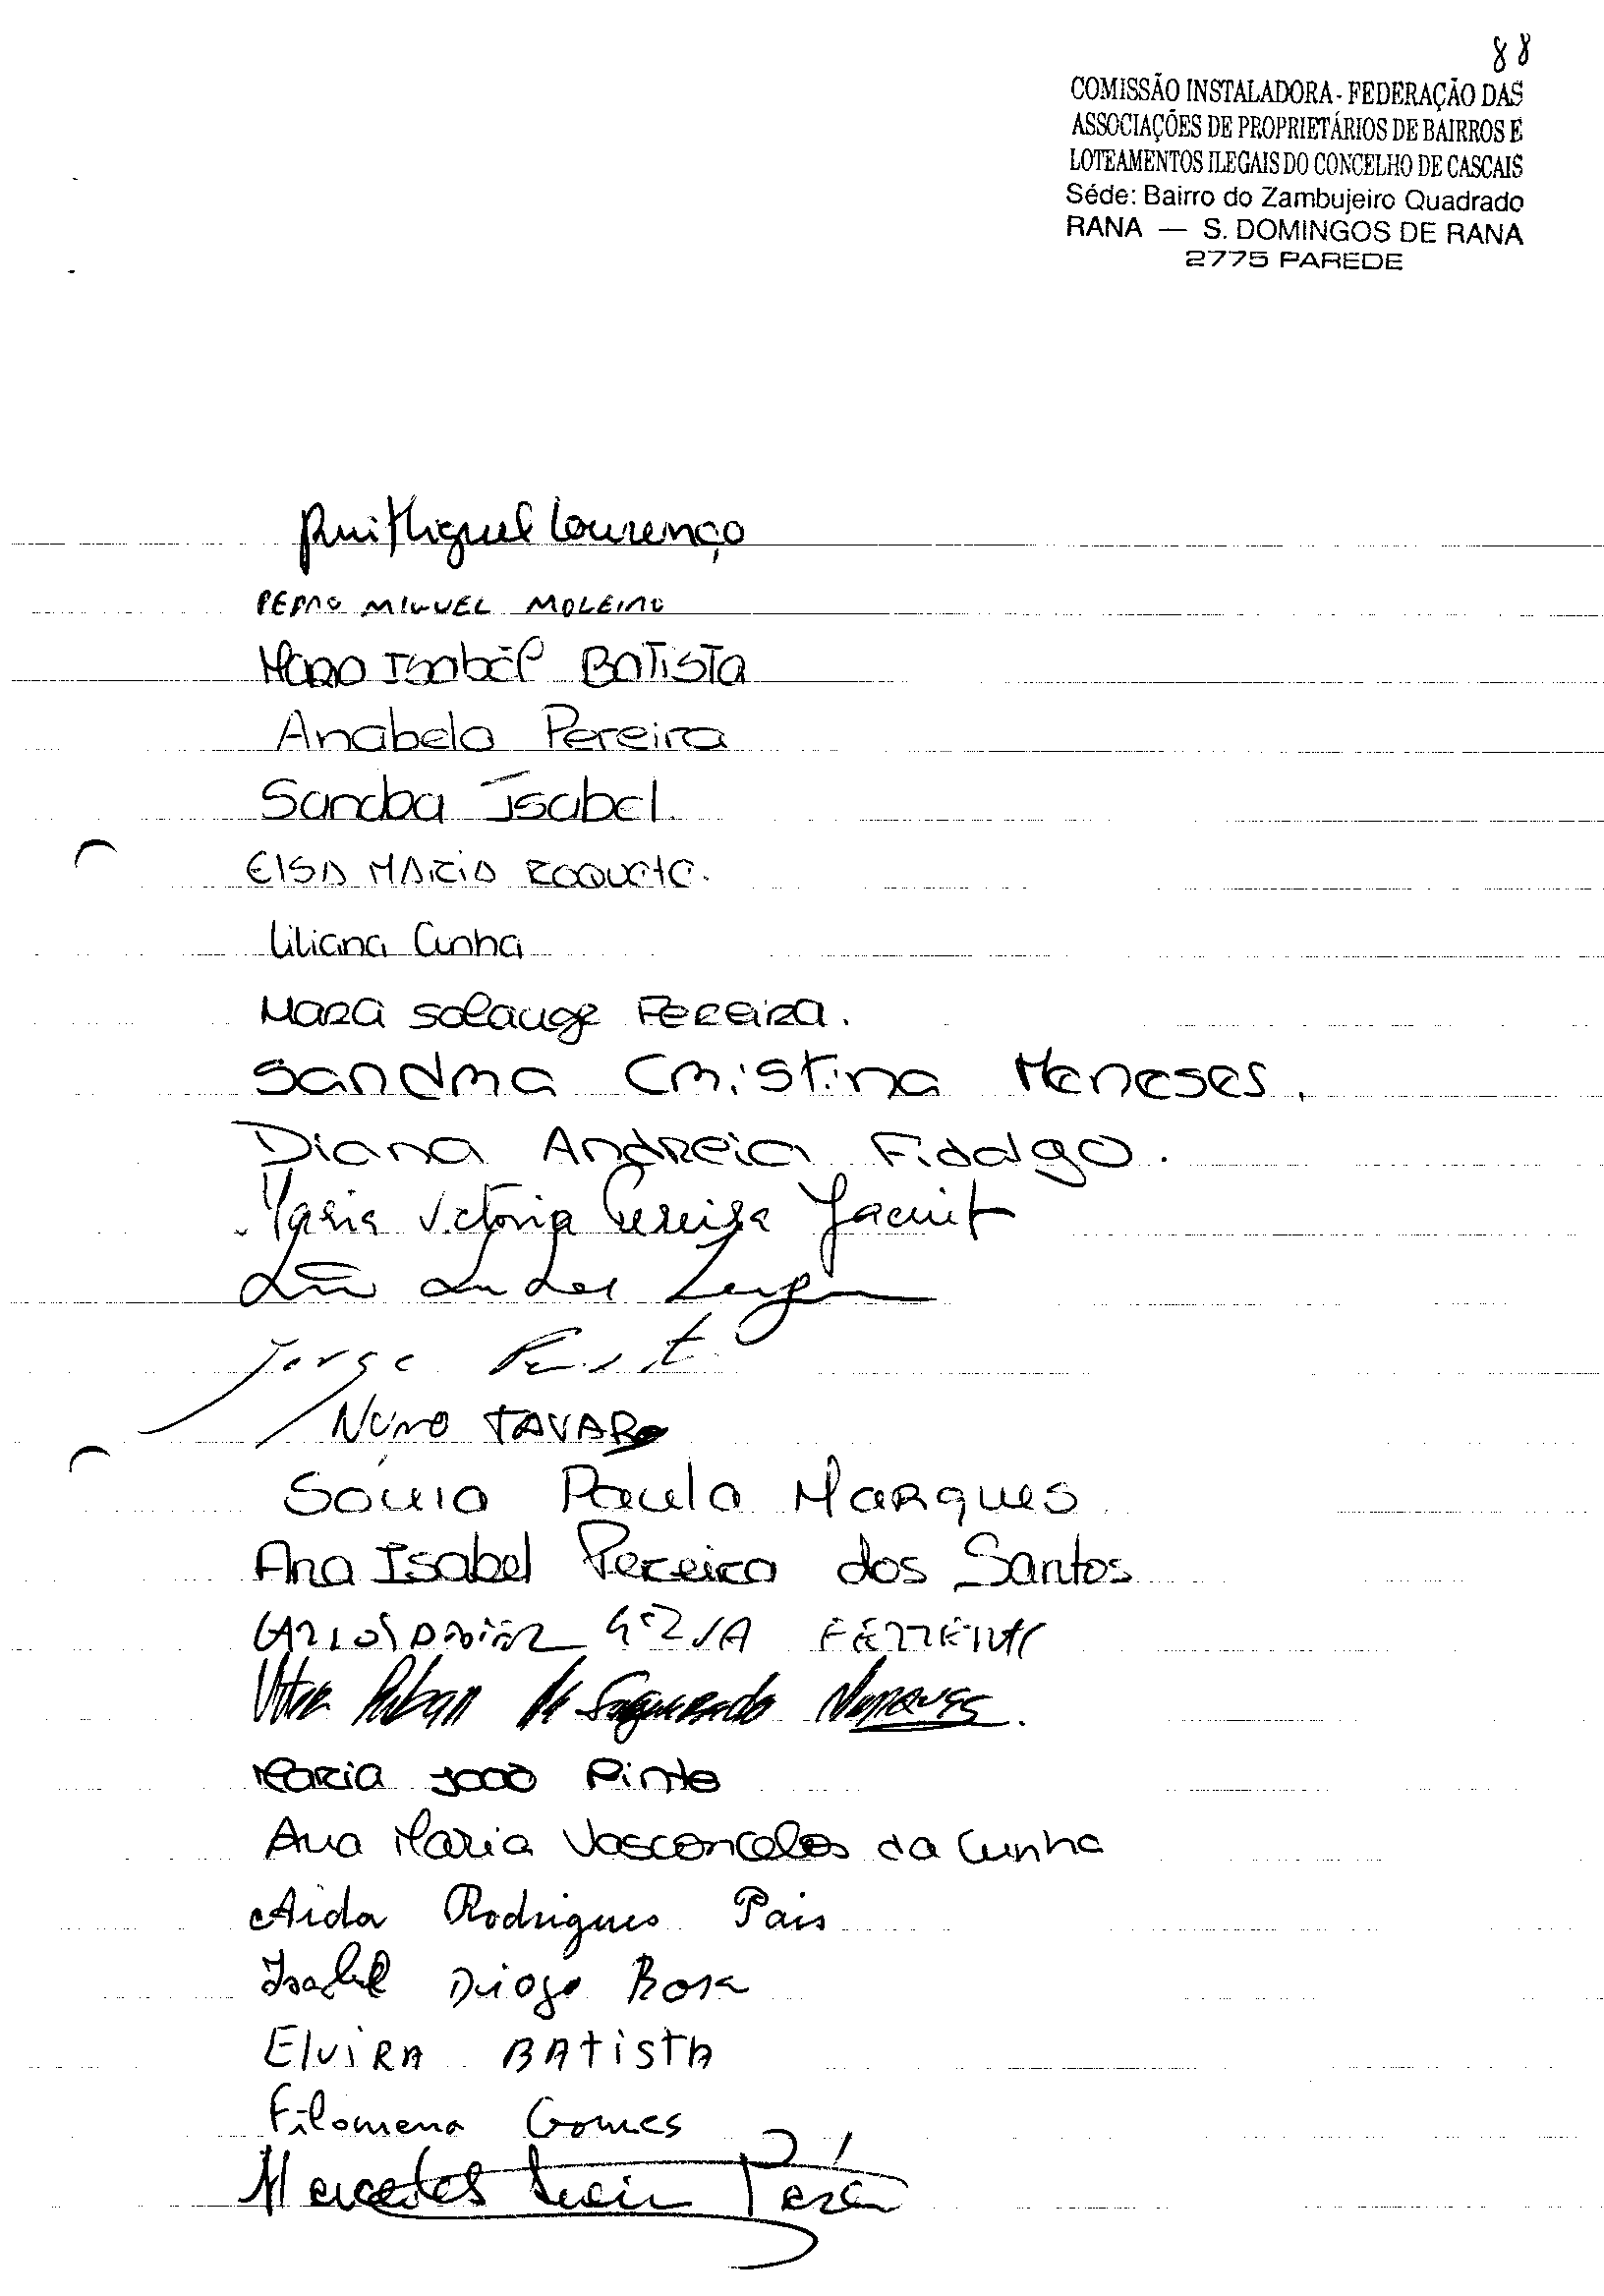 88
COMISSÃO INSTALADORA - FEDERAÇÃO DAS
ASSOCIAÇÕES DE PROPRIETÁRIOS DE BAIRROS E
LOTEAMENTOS ILEGAIS DO CONCELHO DE CASCAIS
Séde: Bairro do Zambujeiro Quadrado
RANA — S. DOMINGOS DE RANA
2775 PAREDE
Rui Miguel Lourenço
PEDRO MIGUEL MOLEIRO
Isabel BATISTA
Anabela Pereira
Sandra Isabel.
ElSA MARIA ROQUETE.
Liliana Cunha
Mara Solange Pereira.
Sandra Cristina Meneses.
Diana Andreia Fidalgo.
Maria Victoria Pereira
Jorge
NUNO TAVARES
Sónia Paula Marques
Ana Isabel Pereira dos Santos
CARLOS
Vitor de Marques.
Maria João Pinto
Ana Maria Vasconcelos da Cunha
Aida Rodrigues Pais
Isabel Diogo Rosa
ElviRA BAtistA
Filomena Gomes
Mercedes